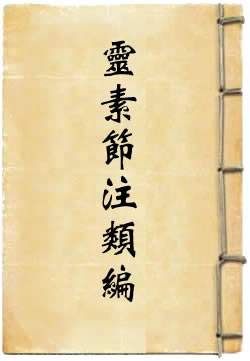 靈素節注類編